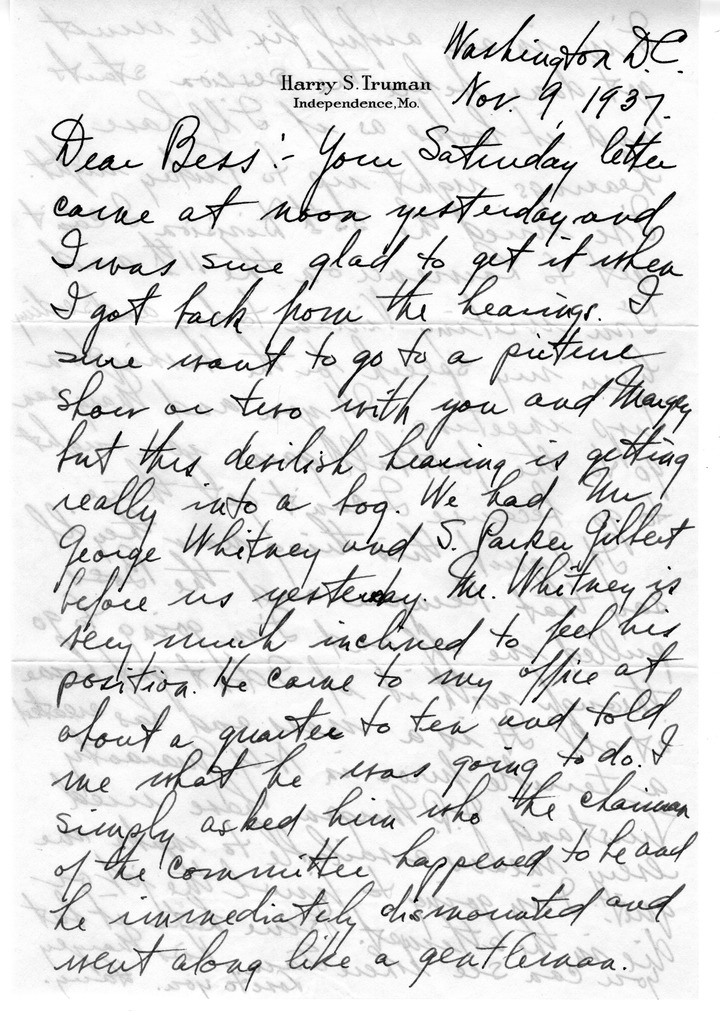 Washington D.C.
Harry S. Truman
Independence, Mo.
Nov. 9, 1937.
Dear Bess:- Your Saturday letter
came at noon yesterday and
I was sure glad to get it when
I got back from the hearings. I
sure want to go to a picture
show or two with you and Margey
but this devilish hearing is getting
really into a bog. We had Mr
George Whitney and S. Parker Gilbert
before us yesterday. Mr. Whitney is
very much inclined to feel his
position. He came to my office at
about a quarter to ten and told
me what he was going to do. I
simply asked him who the chairman
of the committee happened to be and
he immediately dismounted and
went along like a gentleman.